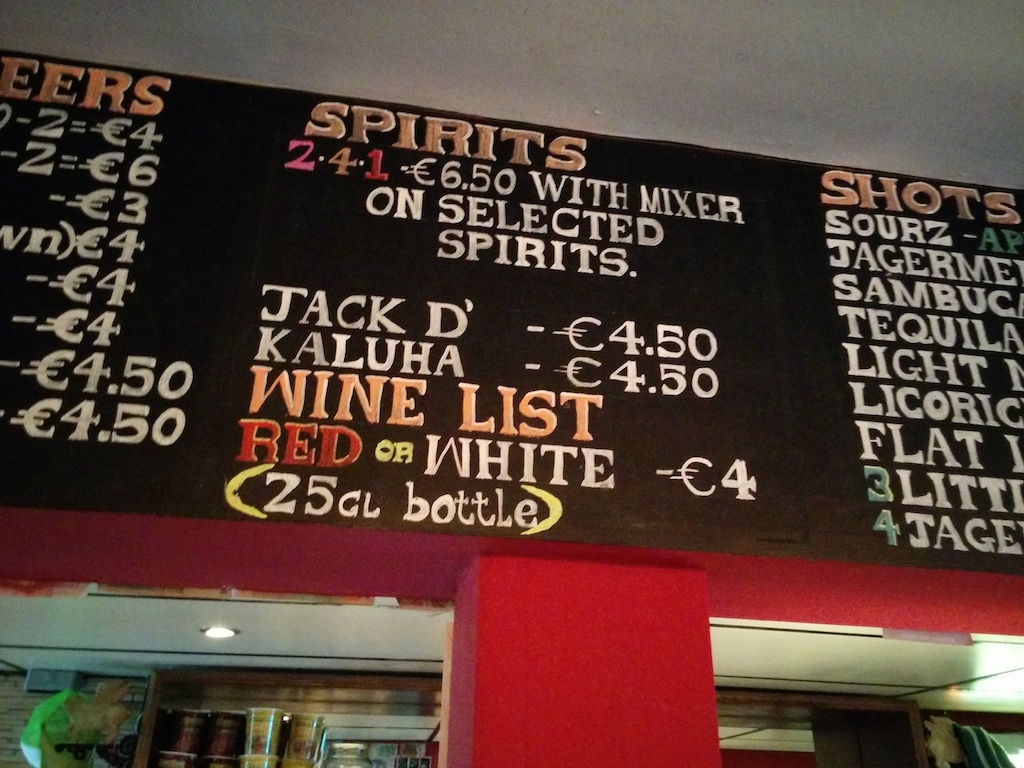 EERS
-2=€4
-2=€6
-€3
wn)€4
-€4
-€4
-€4.50
-€4.50
SPIRITS
2·4·1 -€6.50 WITH MIXER
ON SELECTED
SPIRITS.
JACK D' -€4.50
KALUHA -€4.50
WINE LIST
RED OR WHITE -€4
(25CL bottle)
SHOTS
SOURZ - AP
JAGERME
SAMBUCA
TEQUILA
LIGHT
LICORIC
FLAT L
3 LITTL
4 JAGE